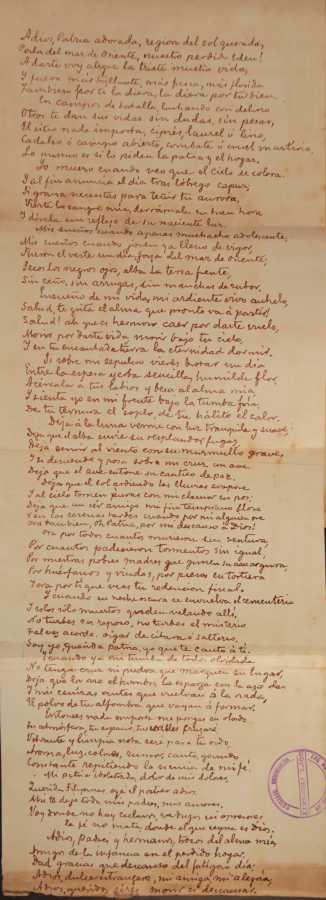 Adios, Patria adorada, region del sol querida,
Perla del mar de Oriente, nuestro perdido Eden!
A darte voy alegre la triste mustia vida,
Y fuera más brillante, más fresca, más florida
Tambien por tí la diera, la diera por tu bien.
En campos de batalla, luchando con delirio
Otros te dan sus vidas sin dudas, sin pesar,
El sitio nada importa, cipres, laurel ó lirio,
Cadalso ó campo abierto, combate ó cruel martirio,
Lo mismo es si lo piden la patria y el hogar.
Yo muero cuando veo que el cielo se colora
Y al fin anuncia el dia tras lóbrego capuz;
Si grana necesitas para teñir tu aurora,
Vierte la sangre mia, derrámala en buen hora
Y dórela un reflejo de su naciente luz.
Mis sueños cuando apenas muchacho adolescente,
Mis sueños cuando joven ya lleno de vigor,
Fueron el verte un dia, joya del mar de oriente,
Secos los negros ojos, alta la tersa frente,
Sin ceño, sin arrugas, sin manchas de rubor.
Ensueño de mi vida, mi ardiente vivo anhelo,
Salud, te grita el alma que pronto vá á partir!
Salud! ah que es hermoso caer por darte vuelo,
Morir por darte vida, morir bajo tu cielo,
Y en tu encantada tierra la eternidad dormir.
Si sobre mi sepulcro vieres brotar un dia
Entre la espesa yerba sencilla, humilde flor,
Acércala á tus labios y besa al alma mia,
Y sienta yo en mi frente bajo la tumba fria
De tu ternura el soplo, de tu hálito el calor.
Deja á la luna verme con luz tranquila y suave;
Deja que el alba envie su resplandor fugaz,
Deja gemir al viento con su murmullo grave,
Y si desciende y posa sobre mi cruz un ave
Deja que el ave entone su cantico de paz.
Deja que el sol ardiendo las lluvias evapore
Y al cielo tornen puras con mi clamor en pos,
Deja que un ser amigo mi fin temprano llore
Y en las serenas tardes cuando por mi alguien ore
Ora tambien, Oh Patria, por mi descanso á Dios!
Ora por todos cuantos murieron sin ventura,
Por cuantos padecieron tormentos sin igual,
Por nuestras pobres madres que gimen su amargura;
Por huérfanos y viudas, por presos en tortura
Y ora por tí que veas tu redencion final.
Y cuando en noche oscura se envuelva el cementerio
Y solos sólo muertos queden velando allí,
No turbes su reposo, no turbes el misterio
Tal vez acordes oigas de citara ó salterio,
Soy yo, querida Patria, yo que te canto á tí.
Y cuando ya mi tumba de todos olvidada
No tenga cruz ni piedra que marquen su lugar,
Deja que la are el hombre, la esparza con la azada,
Y mis cenizas antes que vuelvan á la nada,
El polvo de tu alfombra que vayan á formar.
Entonces nada importa me pongas en olvido
Tu atmósfera, tu espacio, tus valles cruzaré,
Vibrante y limpia nota seré para tu oido,
Aroma, luz, colores, rumor, canto, gemido
Constante repitiendo la esencia de mi fé.
Mi patria idolatrada, dolor de mis dolores,
Querida Filipinas, oye el postrer adios.
Ahi te dejo todo mis padres, mis amores.
Voy donde no hay esclavos, verdugos ni opresores,
Donde la fé no mata, donde el que reyna es Dios.
Adios, padres y hermanos, trozos del alma mia,
Amigos de la infancia en el perdido hogar,
Dad gracias que descanso del fatigoso dia;
Adios, dulce extrangera, mi amiga, mi alegria,
Adios, queridos séres morir es descansar.